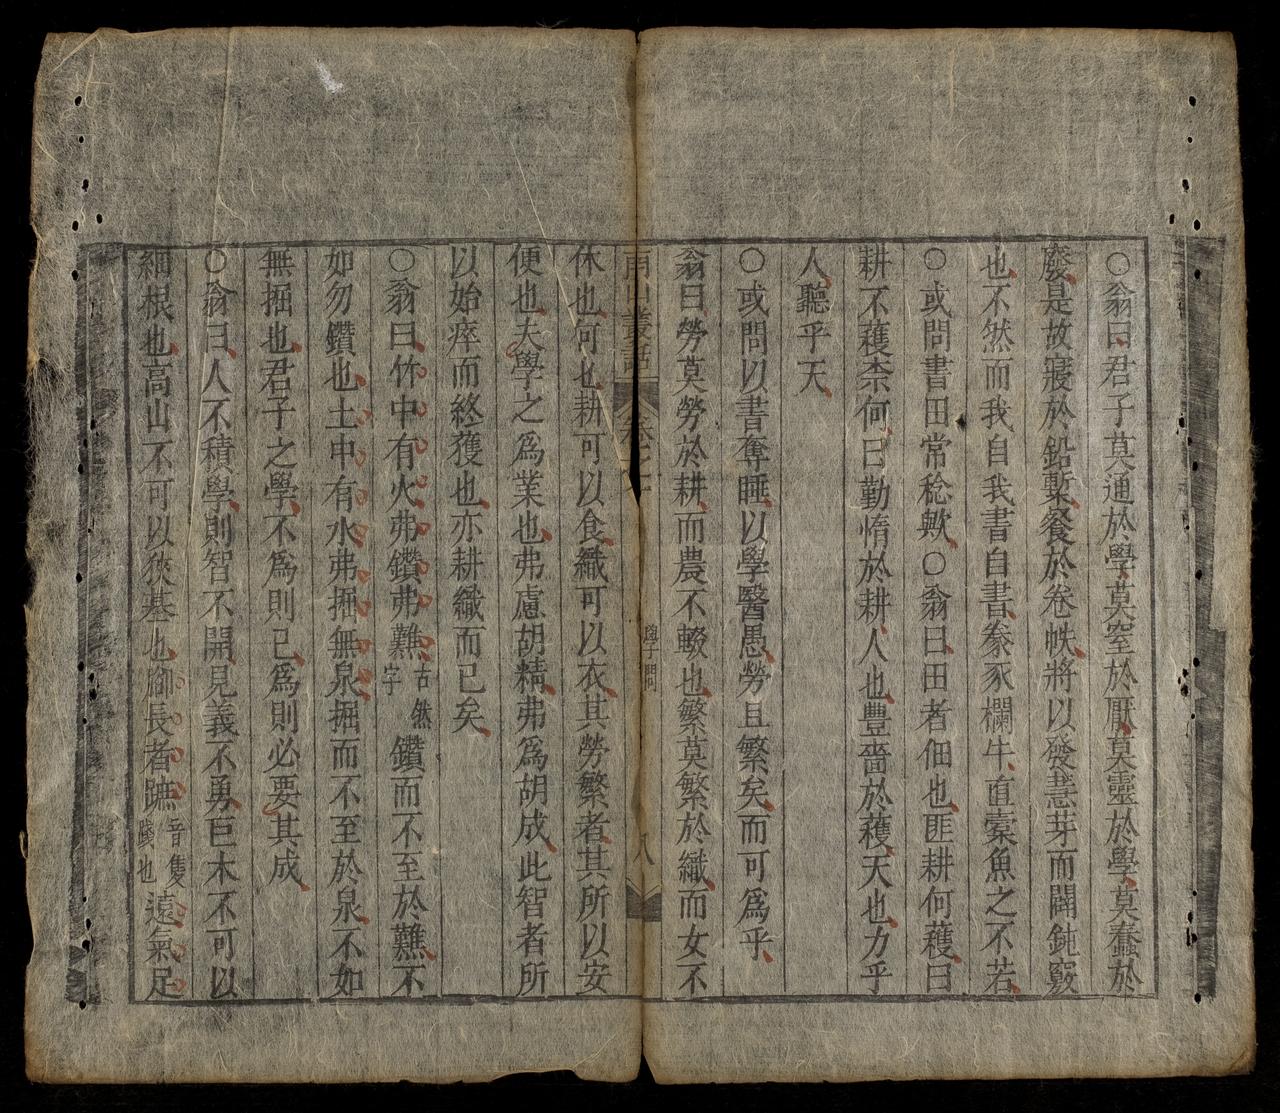 ○翁曰君子莫通於學莫窒於厭莫靈於學莫蠢於
廢是故寢於鉛槧餐於卷帙將以發慧芽而闢鈍竅
也不然而我自我書自書豢豕欄牛直槖魚之不若
○或問書田常稔歟○翁曰田者佃也匪耕何穫曰
耕不穫柰何曰勤惰於耕人也豐嗇於穫天也力乎
人聽乎天
○或問以書奪睡以學醫愚勞且繁矣而可爲乎
翁曰勞莫勞於耕而農不輟也繁莫繁於織而女不
叢話 卷之 學問 八
休也何也耕可以食織可以衣其勞繁者其所以安
便也夫學之爲業也弗慮胡精弗爲胡成此智者所
以始瘁而終獲也亦耕織而已矣
○翁曰竹中有火弗鑽弗難古然字鑽而不至於難不
如勿鑽也土中有水弗掘無泉掘而不至於泉不如
無掘也君子之學不爲則已爲則必要其成
○翁曰人不積學則智不開見義不勇巨木不可以
細根也高山不可以狹基也腳長者蹠音隻也遠氣足